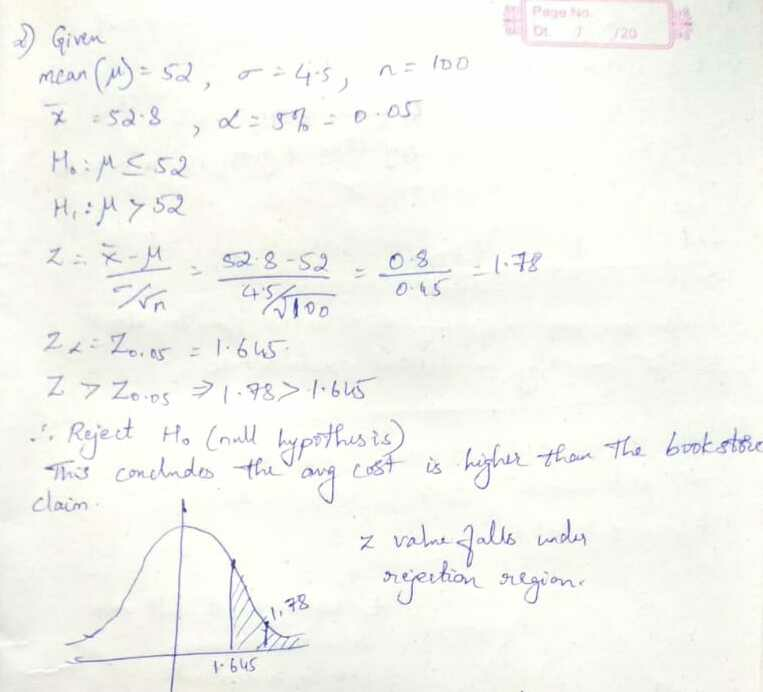 Page No.
Dt. 7 /20
2) Given
mean (μ) = 52, σ = 4.5, n = 100
x̄ = 52.8, α = 5% = 0.05
H₀ : μ ≤ 52
H₁ : μ > 52
Z = x̄-μ / σ/√n = 52.8-52 / 4.5/√100 = 0.8 / 0.45 = 1.78
Zα = Z0.05 = 1.645.
Z > Z0.05 ⇒ 1.78 > 1.645
∴ Reject H₀ (null hypothesis)
This concludes the avg cost is higher than the bookstore
claim.
z value falls under
rejection region.
1.78
1.645